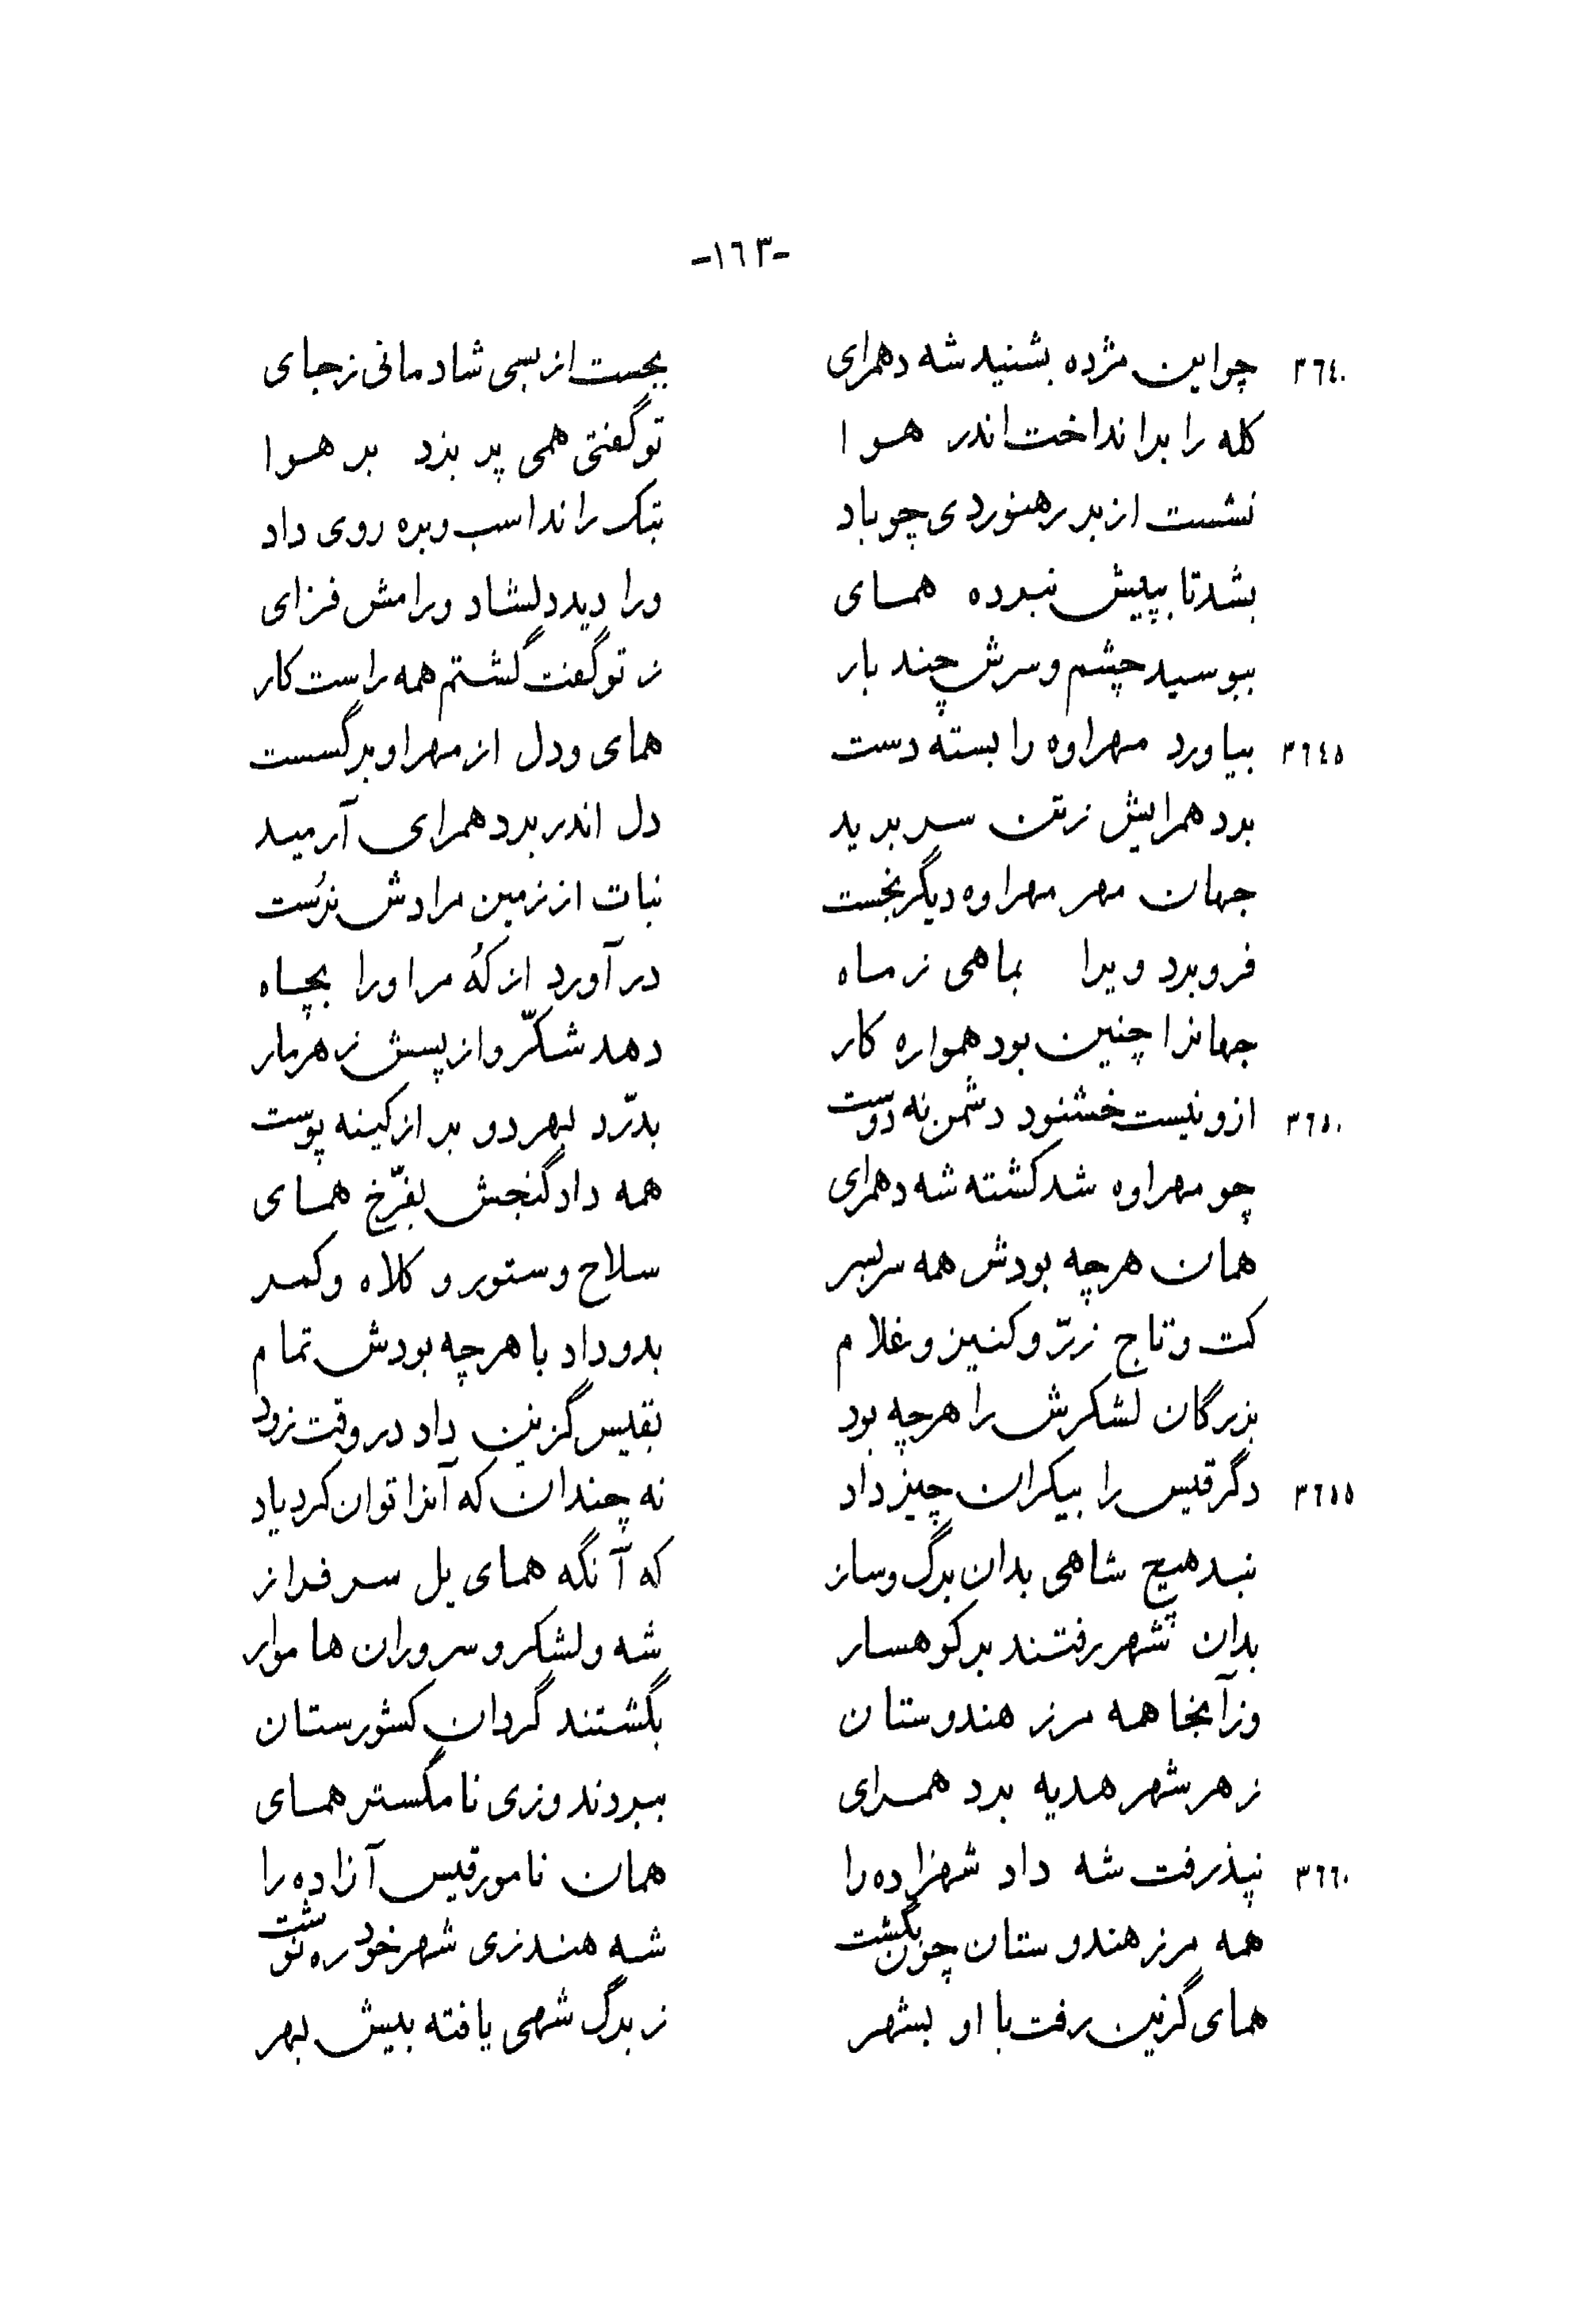 -١٦٣-
٣٦٤٠ چو این مژده بشنید شه دهمرای بجست از بسی شادمانی ز جای
کله را برانداخت اندر هوا تو گفتی همی پر بزد بر هوا
نشست از بر رهنوردی چو باد بتک راند اسب و بره روی داد
بشد تا بپیش نبرده همای ورا دید دلشاد و رامش فزای
ببوسید چشم و سرش چند بار ز تو گفت گشتم همه راست کار
٣٦٤٥ بیاورد مهراوه را بسته دست همای و دل از مهر او بر گسست
برد همرایش ز تن سر برید دل اندر برد همرای آرمید
جهان مهر مهراوه دیگر نجست نبات از زمین مرادش نرُست
فرو برد ویرا بماهی ز ماه در آورد از کُه مر او را بچاه
جهانرا چنین بود همواره کار دهد شکّر و از پسش زهرمار
٣٦٥٠ ازو نیست خشنود دشمن نه دوست بدرّد بهر دو بر از کینه پوست
چو مهراوه شد کشته شه دهمرای همه داد گنجش بفرّخ همای
همان هرچه بودش همه سربسر سلاح و ستور و کلاه و کمر
کت و تاج زرّ و کنیز و غلام بدو داد با هرچه بودش تمام
بزرگان لشکرش را هرچه بود بقیس گزین داد در وقت زود
٣٦٥٥ دگر قیس را بیکران چیز داد نه چندان که آنرا توان کرد یاد
نبد هیچ شاهی بدان برگ و ساز که آنگه همای یل سرفراز
بدان شهر رفتند بر کوهسار شه و لشکر و سروران هاموار
وز آنجا همه مرز هندوستان بگشتند گردان کشورستان
ز هر شهر هدیه برد همرای ببردند وزی نامگستر همای
٣٦٦٠ نپذرفت شه داد شهزاده را همان نامور قیس آزاده را
همه مرز هندوستان چون بگشت شه هند زی شهر خود ره نوشت
همای گزین رفت با او بشهر ز برگ شهی یافته بیش بهر